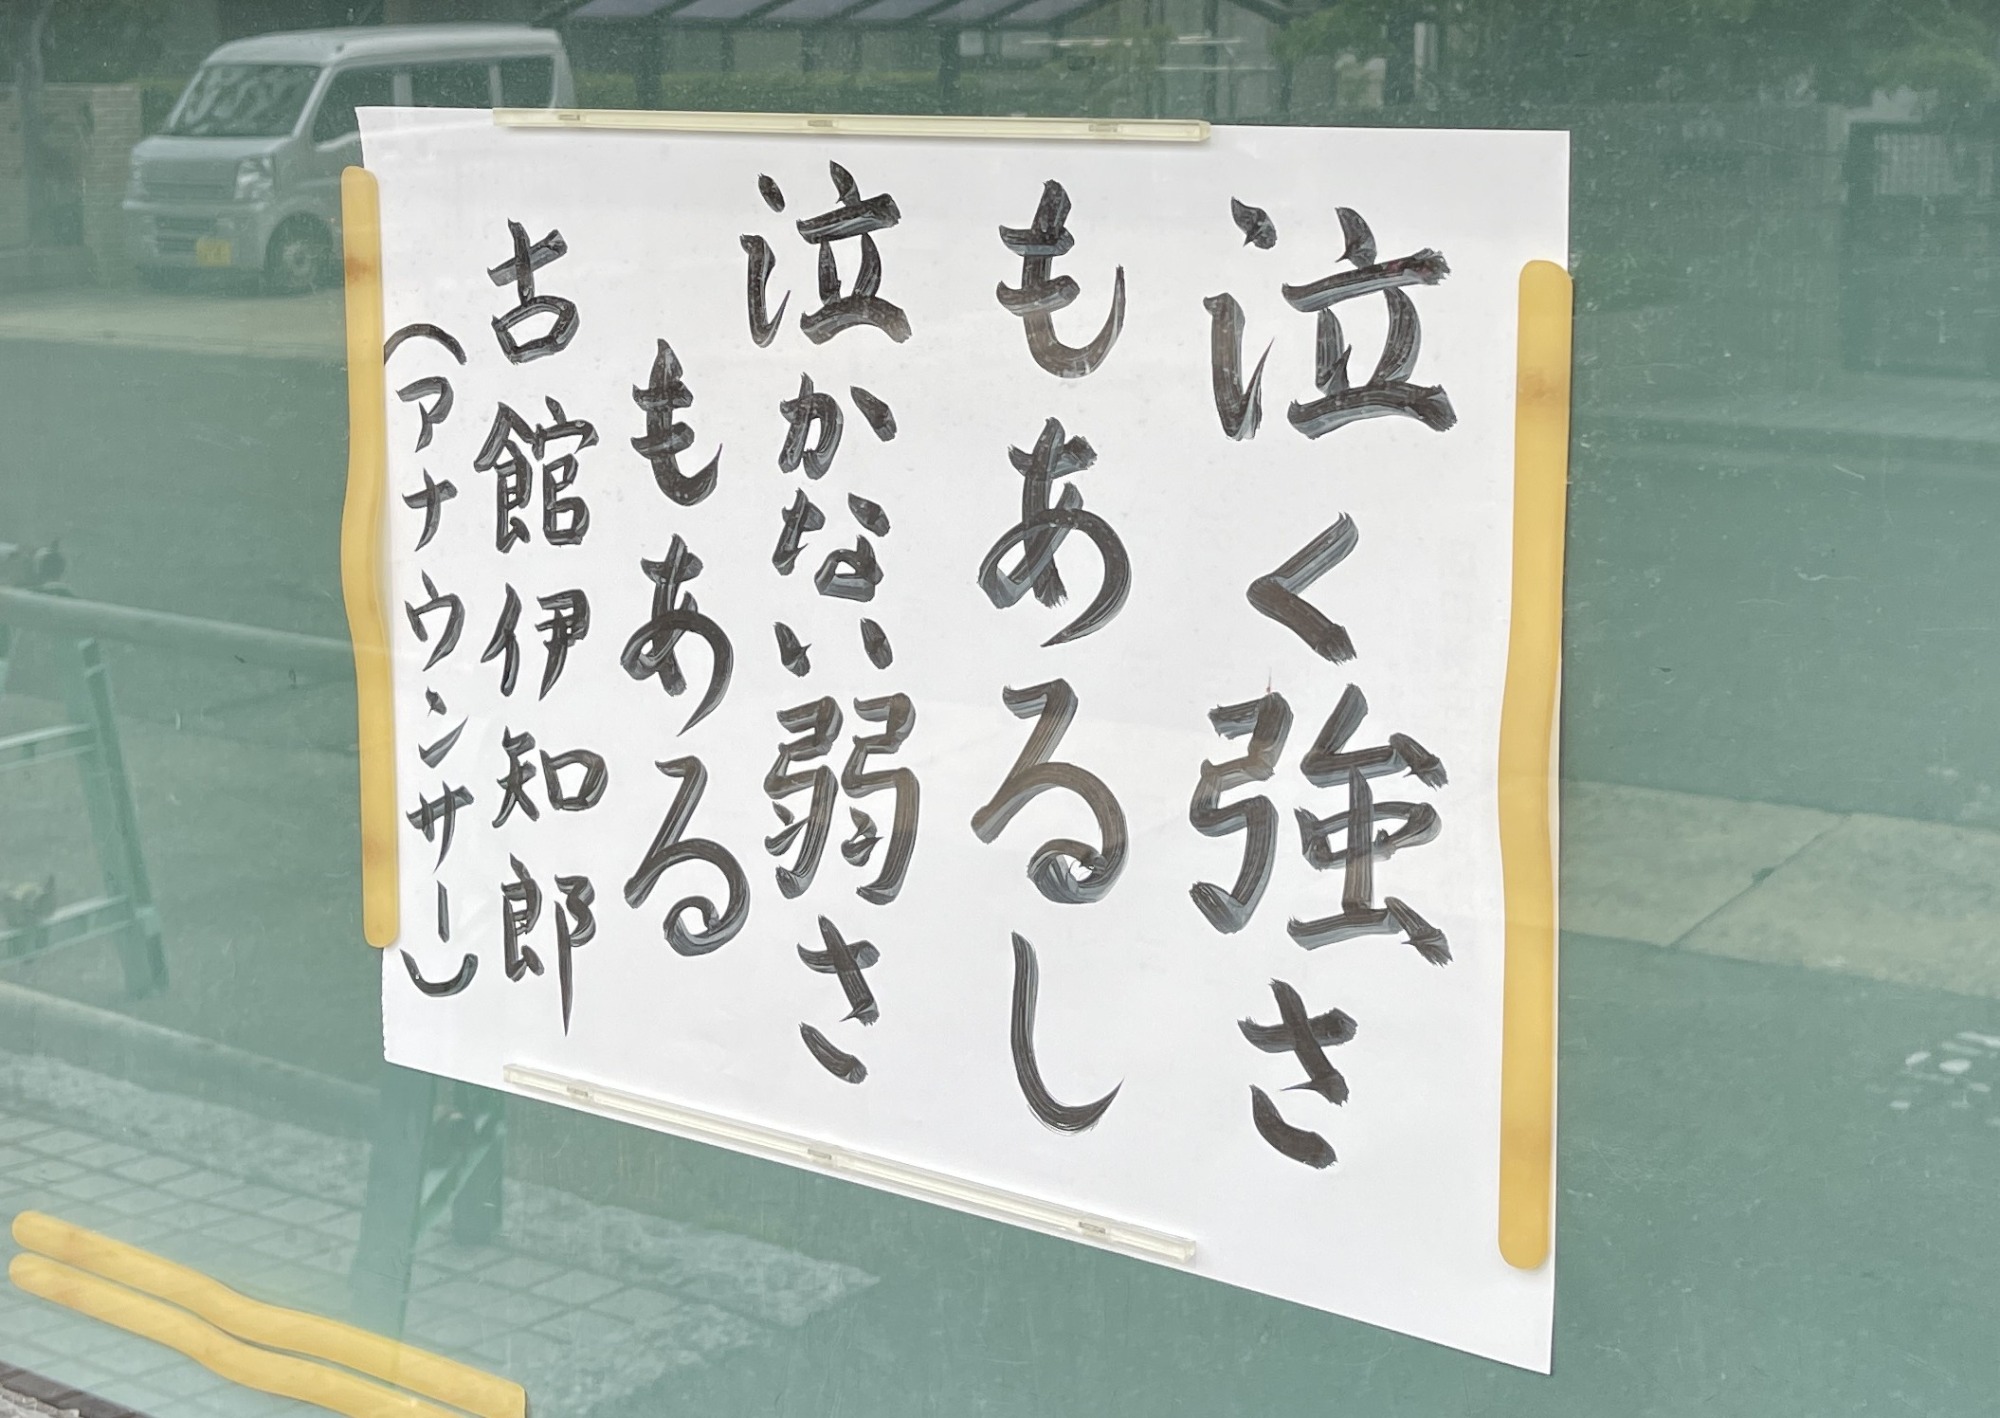 泣く強さ
もあるし
泣かない弱さ
もある
古館伊知郎
（アナウンサー）